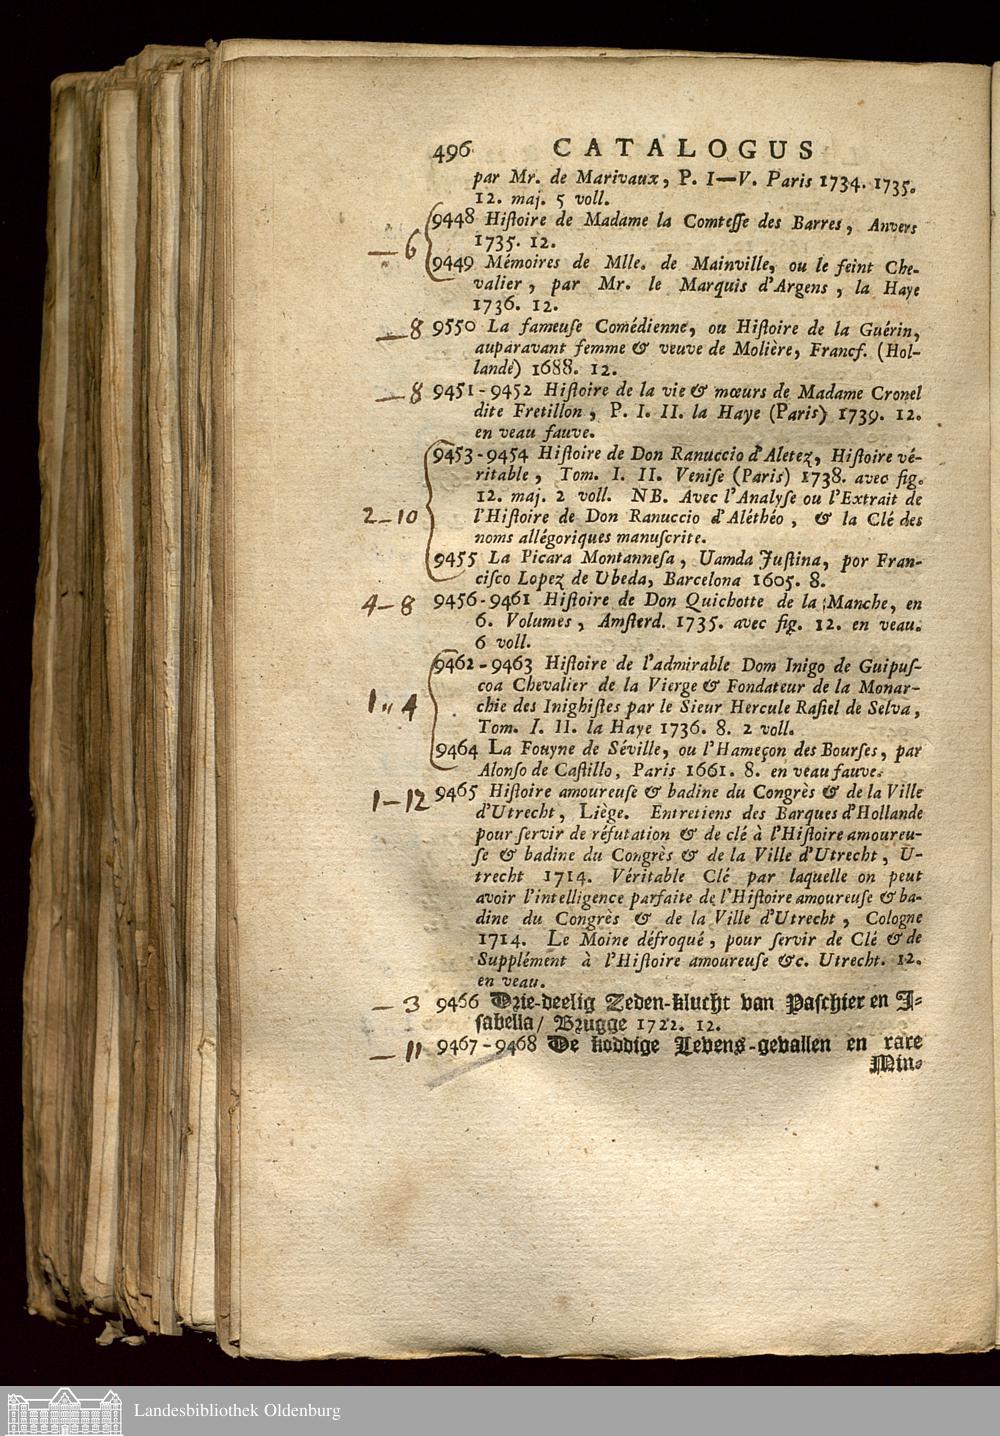 496 CATALOGUS
par Mr. de Marivaux, P. I—V. Paris 1734. 1735.
12. maj. 5 voll.
9448 Hiſtoire de Madame la Comteſſe des Barres, Anvers
1735. 12.
— 6
9449 Mémoires de Mlle. de Mainville, ou le feint Che-
valier, par Mr. le Marquis d'Argens, la Haye
1736. 12.
— 8 9550 La fameuſe Comédienne, ou Hiſtoire de la Guérin,
auparavant femme & veuve de Molière, Francf. (Hol-
lande) 1688. 12.
— 8 9451-9452 Hiſtoire de la vie & mœurs de Madame Cronel
dite Fretillon, P. I. II. la Haye (Paris) 1739. 12.
en veau fauve.
9453-9454 Hiſtoire de Don Ranuccio d'Aletez, Hiſtoire vé-
ritable, Tom. I. II. Veniſe (Paris) 1738. avec fig.
12. maj. 2 voll. NB. Avec l'Analyſe ou l'Extrait de
2—10 l'Hiſtoire de Don Ranuccio d'Aléthéo, & la Clé des
noms allégoriques manuſcrite.
9455 La Picara Montanneſa, Uamda Juſtina, por Fran-
ciſco Lopez de Ubeda, Barcelona 1605. 8.
4—8 9456-9461 Hiſtoire de Don Quichotte de la Manche, en
6. Volumes, Amſterd. 1735. avec fig. 12. en veau.
6 voll.
9462-9463 Hiſtoire de l'admirable Dom Inigo de Guipuſ-
coa Chevalier de la Vierge & Fondateur de la Monar-
1„4 chie des Inighiſtes par le Sieur Hercule Raſiel de Selva,
Tom. I. II. la Haye 1736. 8. 2 voll.
9464 La Fouyne de Séville, ou l'Hameçon des Bourſes, par
Alonſo de Caſtillo, Paris 1661. 8. en veau fauve.
1—12 9465 Hiſtoire amoureuſe & badine du Congrès & de la Ville
d'Utrecht, Liège. Entretiens des Barques d'Hollande
pour ſervir de réfutation & de clé à l'Hiſtoire amoureu-
ſe & badine du Congrès & de la Ville d'Utrecht, U-
trecht 1714. Véritable Clé par laquelle on peut
avoir l'intelligence parfaite de l'Hiſtoire amoureuſe & ba-
dine du Congrès & de la Ville d'Utrecht, Cologne
1714. Le Moine défroqué, pour ſervir de Clé & de
Supplément à l'Hiſtoire amoureuſe &c. Utrecht. 12.
en veau.
— 3 9466 Drie-deelig Zeden-klucht van Paſchier en I-
ſabella/ Brugge 1722. 12.
— 11 9467-9468 De koddige Levens-gevallen en rare
Min-
Landesbibliothek Oldenburg